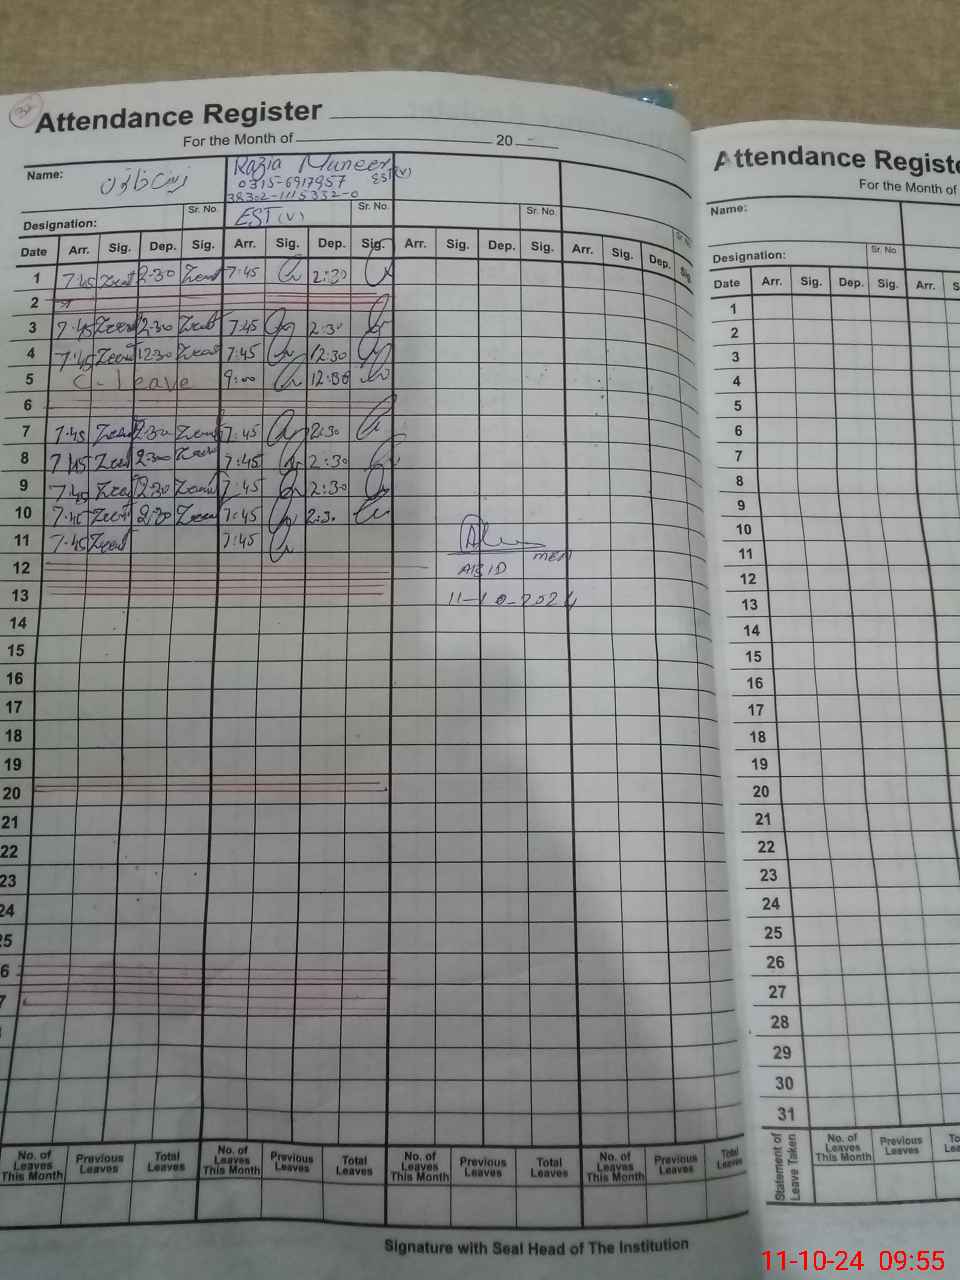 Attendance Register
For the Month of 20
Name: زینت خاتون Razia Muneer EST(V)
0315-6917957
38302-1115332-0
Sr. No. Sr. No. Sr. No. Sr. No.
Designation: EST (V)
Date Arr. Sig. Dep. Sig. Arr. Sig. Dep. Sig. Arr. Sig. Dep. Sig. Arr. Sig. Dep. Sig.
1 7:45 2:30 7:45 2:30
2
3 7:45 2:30 7:45 2:30
4 7:45 12:30 7:45 12:30
5 C-Leave 9:00 12:30
6
7 7:45 2:30 7:45 2:30
8 7:45 2:30 7:45 2:30
9 7:45 2:30 7:45 2:30
10 7:45 2:30 7:45 2:30
11 7:45 7:45
12 ABID
13 11-10-2024
14
15
16
17
18
19
20
21
22
23
24
25
6
7
No. of Leaves This Month Previous Leaves Total Leaves No. of Leaves This Month Previous Leaves Total Leaves No. of Leaves This Month Previous Leaves Total Leaves No. of Leaves This Month Previous Leaves Total Leaves
Signature with Seal Head of The Institution
Attendance Registe
For the Month of
Name:
Sr. No
Designation:
Date Arr. Sig. Dep. Sig. Arr. S
1
2
3
4
5
6
7
8
9
10
11
12
13
14
15
16
17
18
19
20
21
22
23
24
25
26
27
28
29
30
31
Statement of Leave Taken No. of Leaves This Month Previous Leaves To Lea
11-10-24 09:55